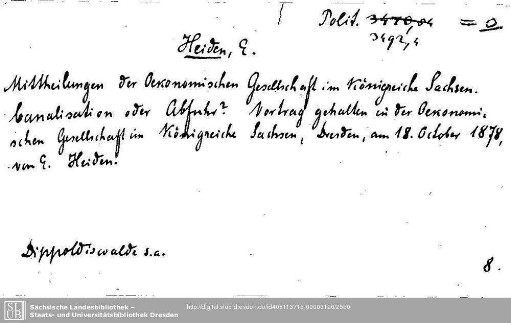 Polit. 3470,04 = 0
3492,4
Heiden, E.
Mittheilungen der Oekonomischen Gesellschaft im Königreiche Sachsen.
Canalisation oder Abfuhr? Vortrag gehalten in der Oekonomi-
schen Gesellschaft im Königreiche Sachsen, Dresden, am 18. October 1878,
von E. Heiden.
Dippoldiswalde s.a.
8.
SLUB
Sächsische Landesbibliothek –
Staats- und Universitätsbibliothek Dresden